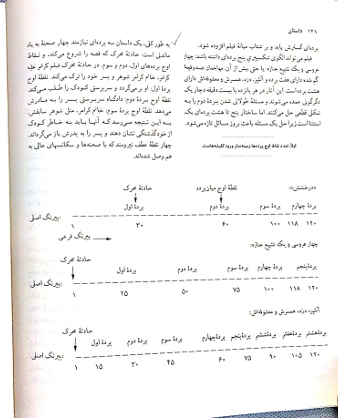 ۱۴۸ داستان
برده‌ای گسارش یابد و بر شتاب میانهٔ فیلم افزوده شود.
فیلم می‌تواند الگوی شکسپیری پنج پرده‌ای داشته باشد: چهار
عروسی و یک تشییع جنازه. یا حتی بیش از آن. مهاجمان صندوقچهٔ
گمشده دارای هفت پرده و آشپز، دزد، همسرش و معشوقه‌اش دارای
هشت پرده است. این آثار در هر پانزده یا بیست دقیقه دچار یک
دگرگونی عمده می‌شوند و مسئلهٔ طولانی شدن پردهٔ دوم را به
شکلی قطعی حل می‌کنند. اما ساختار پنج تا هشت پرده‌ای یک
استثناست زیرا حل یک مسئله باعث بروز مسائل تازه می‌شود.
اولاً: تعدد نقاط اوج پرده‌ها زمینه‌ساز ورود کلیشه‌هاست
به طور کلی، یک داستان سه پرده‌ای نیازمند چهار صحنهٔ به یاد
ماندنی است: حادثهٔ محرک که قصه را شروع می‌کند، و نقاط
اوج پرده‌های اول، دوم و سوم. در حادثهٔ محرک فیلم کرامر علیه
کرامر، خانم کرامر شوهر و پسر خود را ترک می‌کند. نقطهٔ اوج
پردهٔ اول: او برمی‌گردد و سرپرستی کودک را طلب می‌کند.
نقطهٔ اوج پردهٔ دوم: دادگاه سرپرستی پسر را به مادرش
می‌دهد. نقطهٔ اوج پردهٔ سوم: خانم کرامر، مثل شوهر سابقش،
به این نتیجه می‌رسد که آنها باید به خاطر کودک
از خودگذشتگی نشان دهند و پسر را به پدرش باز می‌گرداند.
چهار نقطهٔ عطف نیرومند که با صحنه‌ها و سکانسهای عالی به
هم وصل شده‌اند.
«درخشش»:
حادثهٔ محرک نقطهٔ اوج میان‌پرده
پردهٔ اول پردهٔ دوم پردهٔ سوم پردهٔ چهارم
پیرنگ اصلی:
۱ ۳۰ ۶۰ ۱۰۰ ۱۱۸ ۱۲۰
پیرنگ فرعی
چهار عروسی و یک تشییع جنازه:
حادثهٔ محرک
پردهٔ اول پردهٔ دوم پردهٔ سوم پردهٔ چهارم پردهٔ پنجم
پیرنگ اصلی:
۱ ۲۵ ۵۰ ۷۵ ۱۰۰ ۱۱۸ ۱۲۰
آشپز، دزد، همسرش و معشوقه‌اش:
حادثهٔ محرک
پردهٔ اول پردهٔ دوم پردهٔ سوم پردهٔ چهارم پردهٔ پنجم پردهٔ ششم پردهٔ هفتم پردهٔ هشتم
پیرنگ اصلی:
۱ ۱۵ ۳۰ ۴۵ ۶۰ ۷۵ ۹۰ ۱۰۵ ۱۲۰